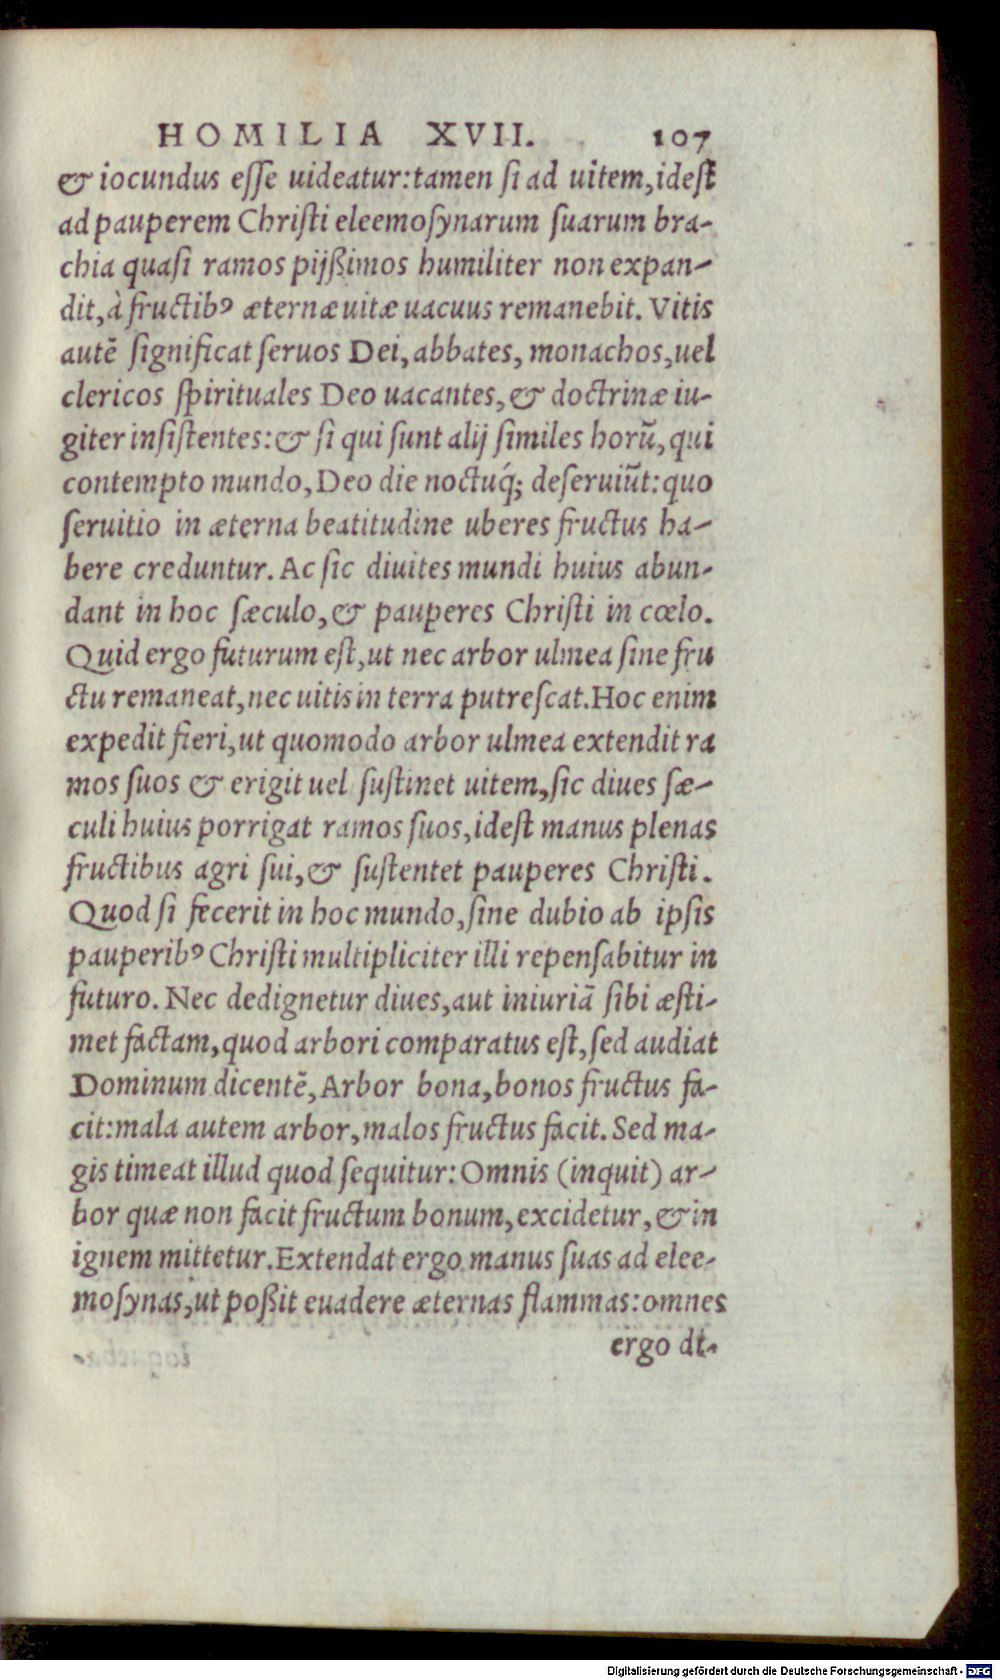 HOMILIA XVII. 107
& iocundus eſſe uideatur: tamen ſi ad uitem, ideſt
ad pauperem Chriſti eleemoſynarum ſuarum bra-
chia quaſi ramos pijßimos humiliter non expan-
dit, à fructibꝰ æternæ uitæ uacuus remanebit. Vitis
autē ſignificat ſeruos Dei, abbates, monachos, uel
clericos ſpirituales Deo uacantes, & doctrinæ iu-
giter inſiſtentes: & ſi qui ſunt alij ſimiles horū, qui
contempto mundo, Deo die noctuq́; deſeruiūt: quo
ſeruitio in æterna beatitudine uberes fructus ha-
bere creduntur. Ac ſic diuites mundi huius abun-
dant in hoc ſæculo, & pauperes Chriſti in cœlo.
Quid ergo futurum eſt, ut nec arbor ulmea ſine fru
ctu remaneat, nec uitis in terra putreſcat. Hoc enim
expedit fieri, ut quomodo arbor ulmea extendit ra
mos ſuos & erigit uel ſuſtinet uitem, ſic diues ſæ-
culi huius porrigat ramos ſuos, ideſt manus plenas
fructibus agri ſui, & ſuſtentet pauperes Chriſti.
Quod ſi fecerit in hoc mundo, ſine dubio ab ipſis
pauperibꝰ Chriſti multipliciter illi repenſabitur in
futuro. Nec dedignetur diues, aut iniuriā ſibi æſti-
met factam, quod arbori comparatus eſt, ſed audiat
Dominum dicentē, Arbor bona, bonos fructus fa-
cit: mala autem arbor, malos fructus facit. Sed ma-
gis timeat illud quod ſequitur: Omnis (inquit) ar-
bor quæ non facit fructum bonum, excidetur, & in
ignem mittetur. Extendat ergo manus ſuas ad elee-
moſynas, ut poßit euadere æternas flammas: omnes
ergo di-
Digitalisierung gefördert durch die Deutsche Forschungsgemeinschaft - DFG